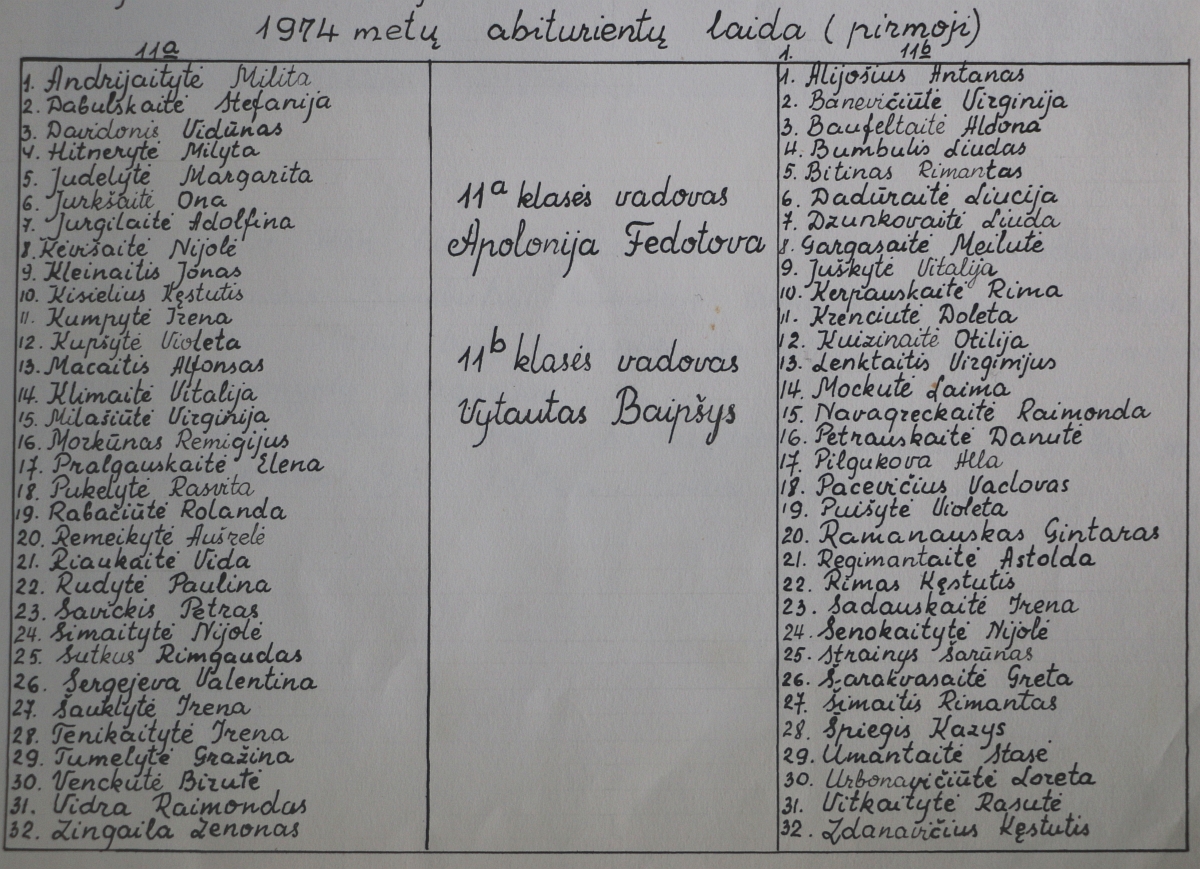 1974 metų abiturientų laida (pirmoji)
11a
1. Andrijaitytė Milita
2. Dabulskaitė Stefanija
3. Davidonis Vidūnas
4. Hitnerytė Milyta
5. Judelytė Margarita
6. Jurkšaitė Ona
7. Jurgilaitė Adolfina
8. Keiršaitė Nijolė
9. Kleinaitis Jonas
10. Kisielius Kęstutis
11. Kumpytė Irena
12. Kupšytė Violeta
13. Macaitis Alfonsas
14. Klimaitė Vitalija
15. Milašiūtė Virginija
16. Morkūnas Remigijus
17. Pralgauskaitė Elena
18. Pukelytė Rasvita
19. Rabačiūtė Rolanda
20. Remeikytė Aušrelė
21. Riaukaitė Vida
22. Rudytė Paulina
23. Savickis Petras
24. Simaitytė Nijolė
25. Sutkus Rimgaudas
26. Sergejeva Valentina
27. Šauklytė Irena
28. Tenikaitytė Irena
29. Tumelytė Gražina
30. Venckutė Birutė
31. Vidra Raimondas
32. Zingaila Zenonas
11a klasės vadovas
Apolonija Fedotova
11b klasės vadovas
Vytautas Baipšys
1.
11b
1. Alijošius Antanas
2. Banevičiūtė Virginija
3. Baufeltaitė Aldona
4. Bumbulis Liudas
5. Bitinas Rimantas
6. Dadūraitė Liucija
7. Dzunkovaitė Liuda
8. Gargasaitė Meilutė
9. Juškytė Vitalija
10. Kerpauskaitė Rima
11. Krenciutė Doleta
12. Kuizinaitė Otilija
13. Lenktaitis Virginijus
14. Mockutė Laima
15. Navagreckaitė Raimonda
16. Petrauskaitė Danutė
17. Pilgukova Alla
18. Pacevičius Vaclovas
19. Puišytė Violeta
20. Ramanauskas Gintaras
21. Regimantaitė Astolda
22. Rimas Kęstutis
23. Sadauskaitė Irena
24. Senokaitytė Nijolė
25. Strainys Šarūnas
26. Šarakvasaitė Greta
27. Šimaitis Rimantas
28. Špiegis Kazys
29. Umantaitė Stasė
30. Urbonavičiūtė Loreta
31. Vitkaitytė Rasutė
32. Zdanavičius Kęstutis